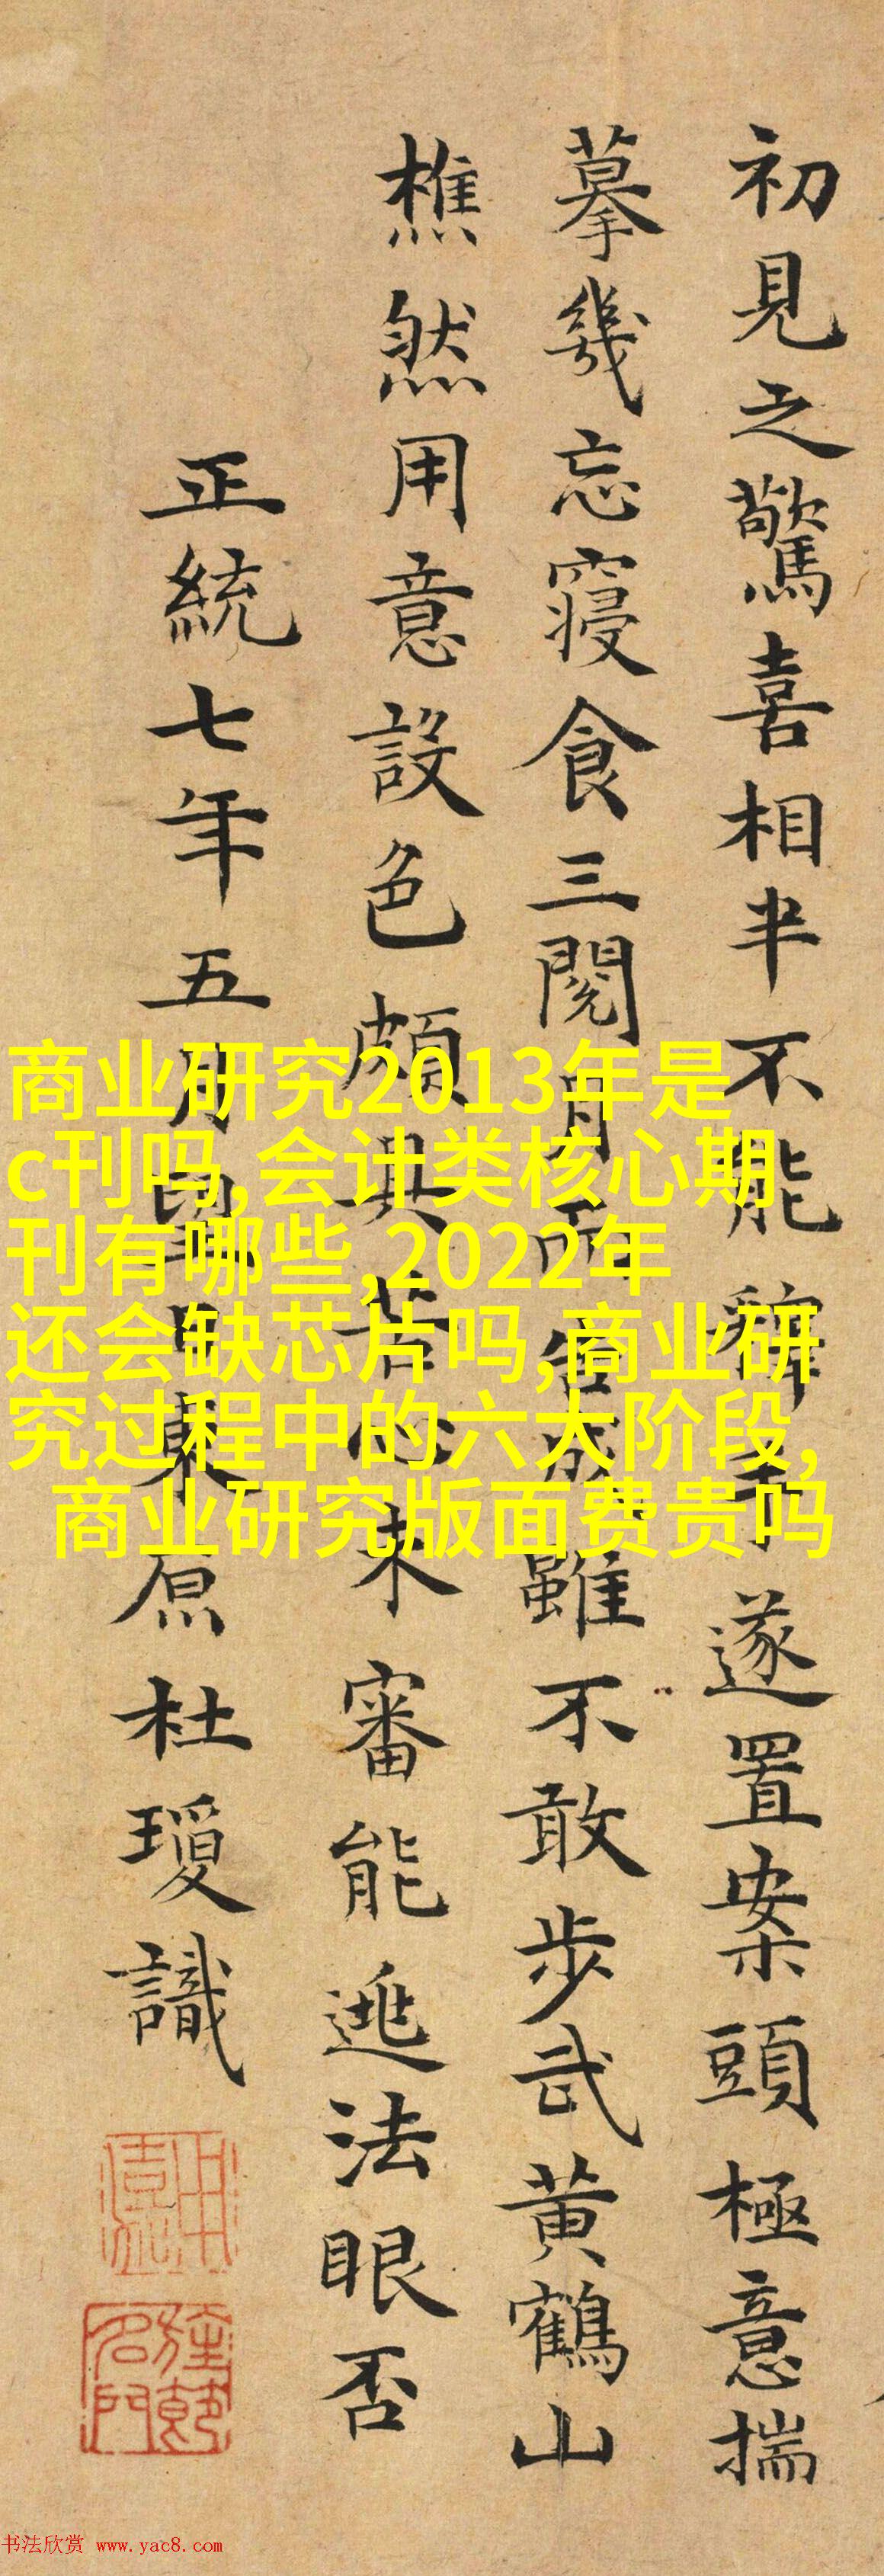 初見之驚喜相半不能釋手遂置案頭極意揣
摹幾忘寢食三閱月而告成雖不敢步武黄鶴山
樵然用意設色頗具苦心未審能逃法眼否
正統七年五月望日東原杜瓊識
商业研究2013年是
c刊吗,会计类核心期
刊有哪些,2022年
还会缺芯片吗,商业研
究过程中的六大阶段,
商业研究版面费贵吗
书法欣赏 www.yac8.com